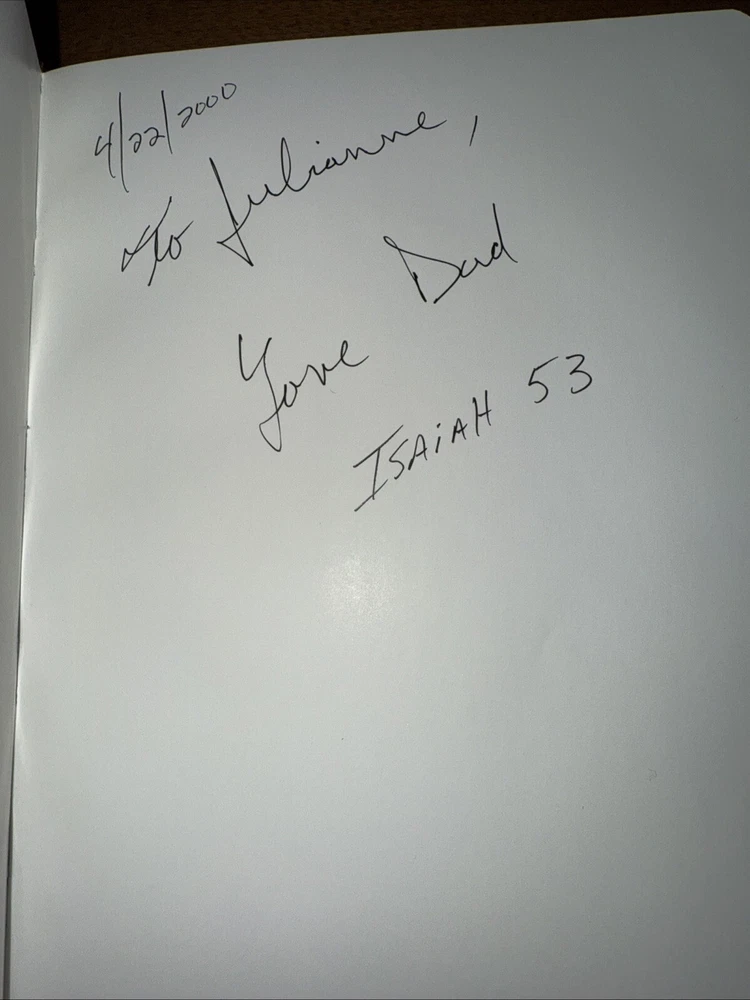 4/22/2000
To Julianne,
Love Dad
Isaiah 53